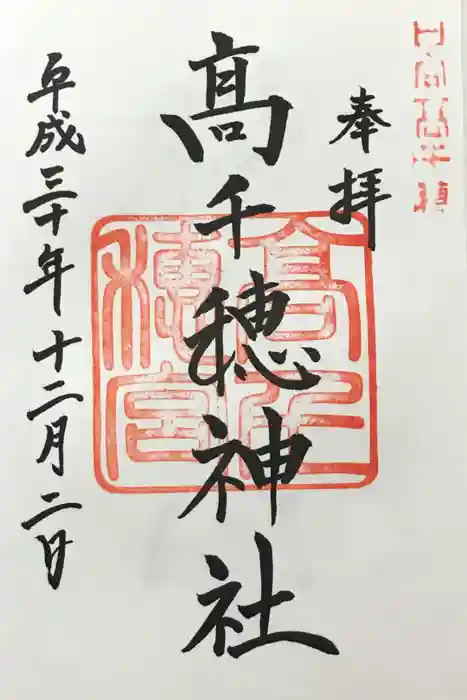 日向高千穂
奉拝
髙千穂神社
高千穂宮
平成三十年十二月二日